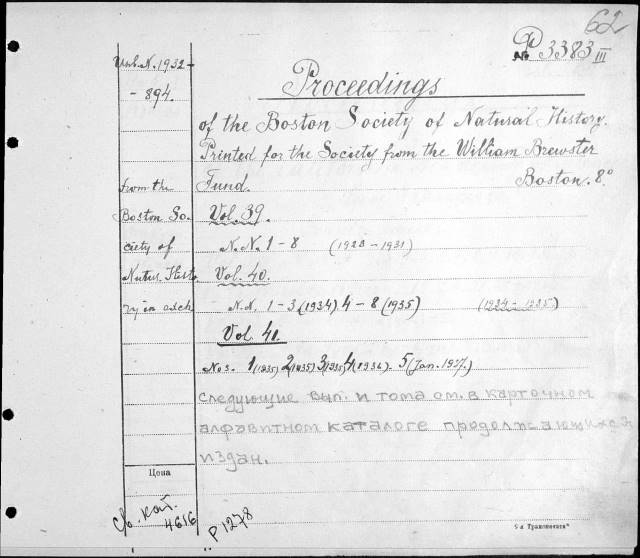 62
№ P 3383 III
Usb. N. 1932 -
- 894.
Proceedings
of the Boston Society of Natural History.
Printed for the Society from the William Brewster
Fund. Boston. 8°
from the
Boston So.
ciety of
Natur. Histo
ry in exch
Vol. 39.
N.N. 1 - 8 (1928 - 1931)
Vol. 40.
N.N. 1 - 3 (1934) 4 - 8 (1935) (1934 - 1935)
Vol. 41.
Nos. 1 (1935) 2 (1935) 3 (1935) 4 (1936). 5 (Jan. 1937.)
следующие вып. и тома см. в карточном
алфавитном каталоге продолжающихся
издан.
Цена
Св. кат.
4616
P 1278